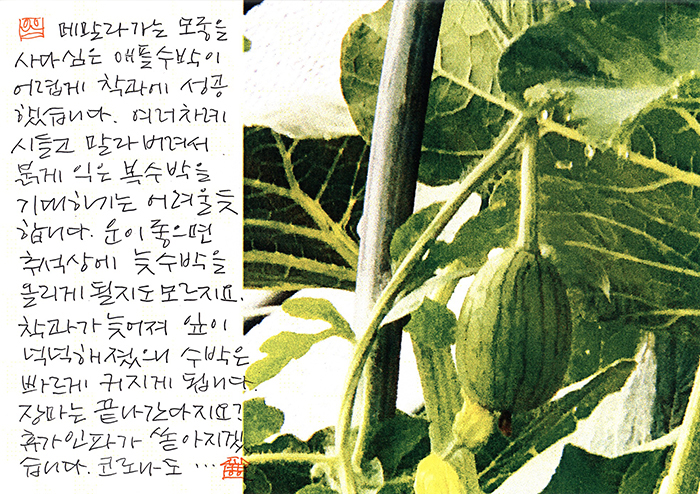 메말라가는 모종을
사다심은 애플수박이
어렵게 착과에 성공
했습니다. 여러차례
시들고 말라버려서
붉게 익은 복수박을
기대하기는 어려울듯
합니다. 운이 좋으면
추석상에 늦수박을
올리게 될지도 모르지요.
착과가 늦어져 잎이
넉넉해졌으니 수박은
빠르게 커지게 됩니다.
장마는 끝나간다지요?
휴가인파가 쏟아지겠
습니다. 코로나도 …